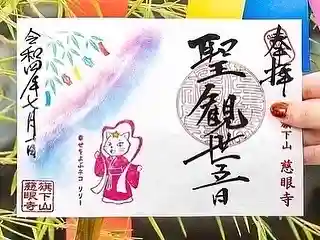 奉拝
旗下山
慈眼寺
聖観世音
幸せをよぶネコ リリー
令和四年七月一日
旗下山
慈眼寺